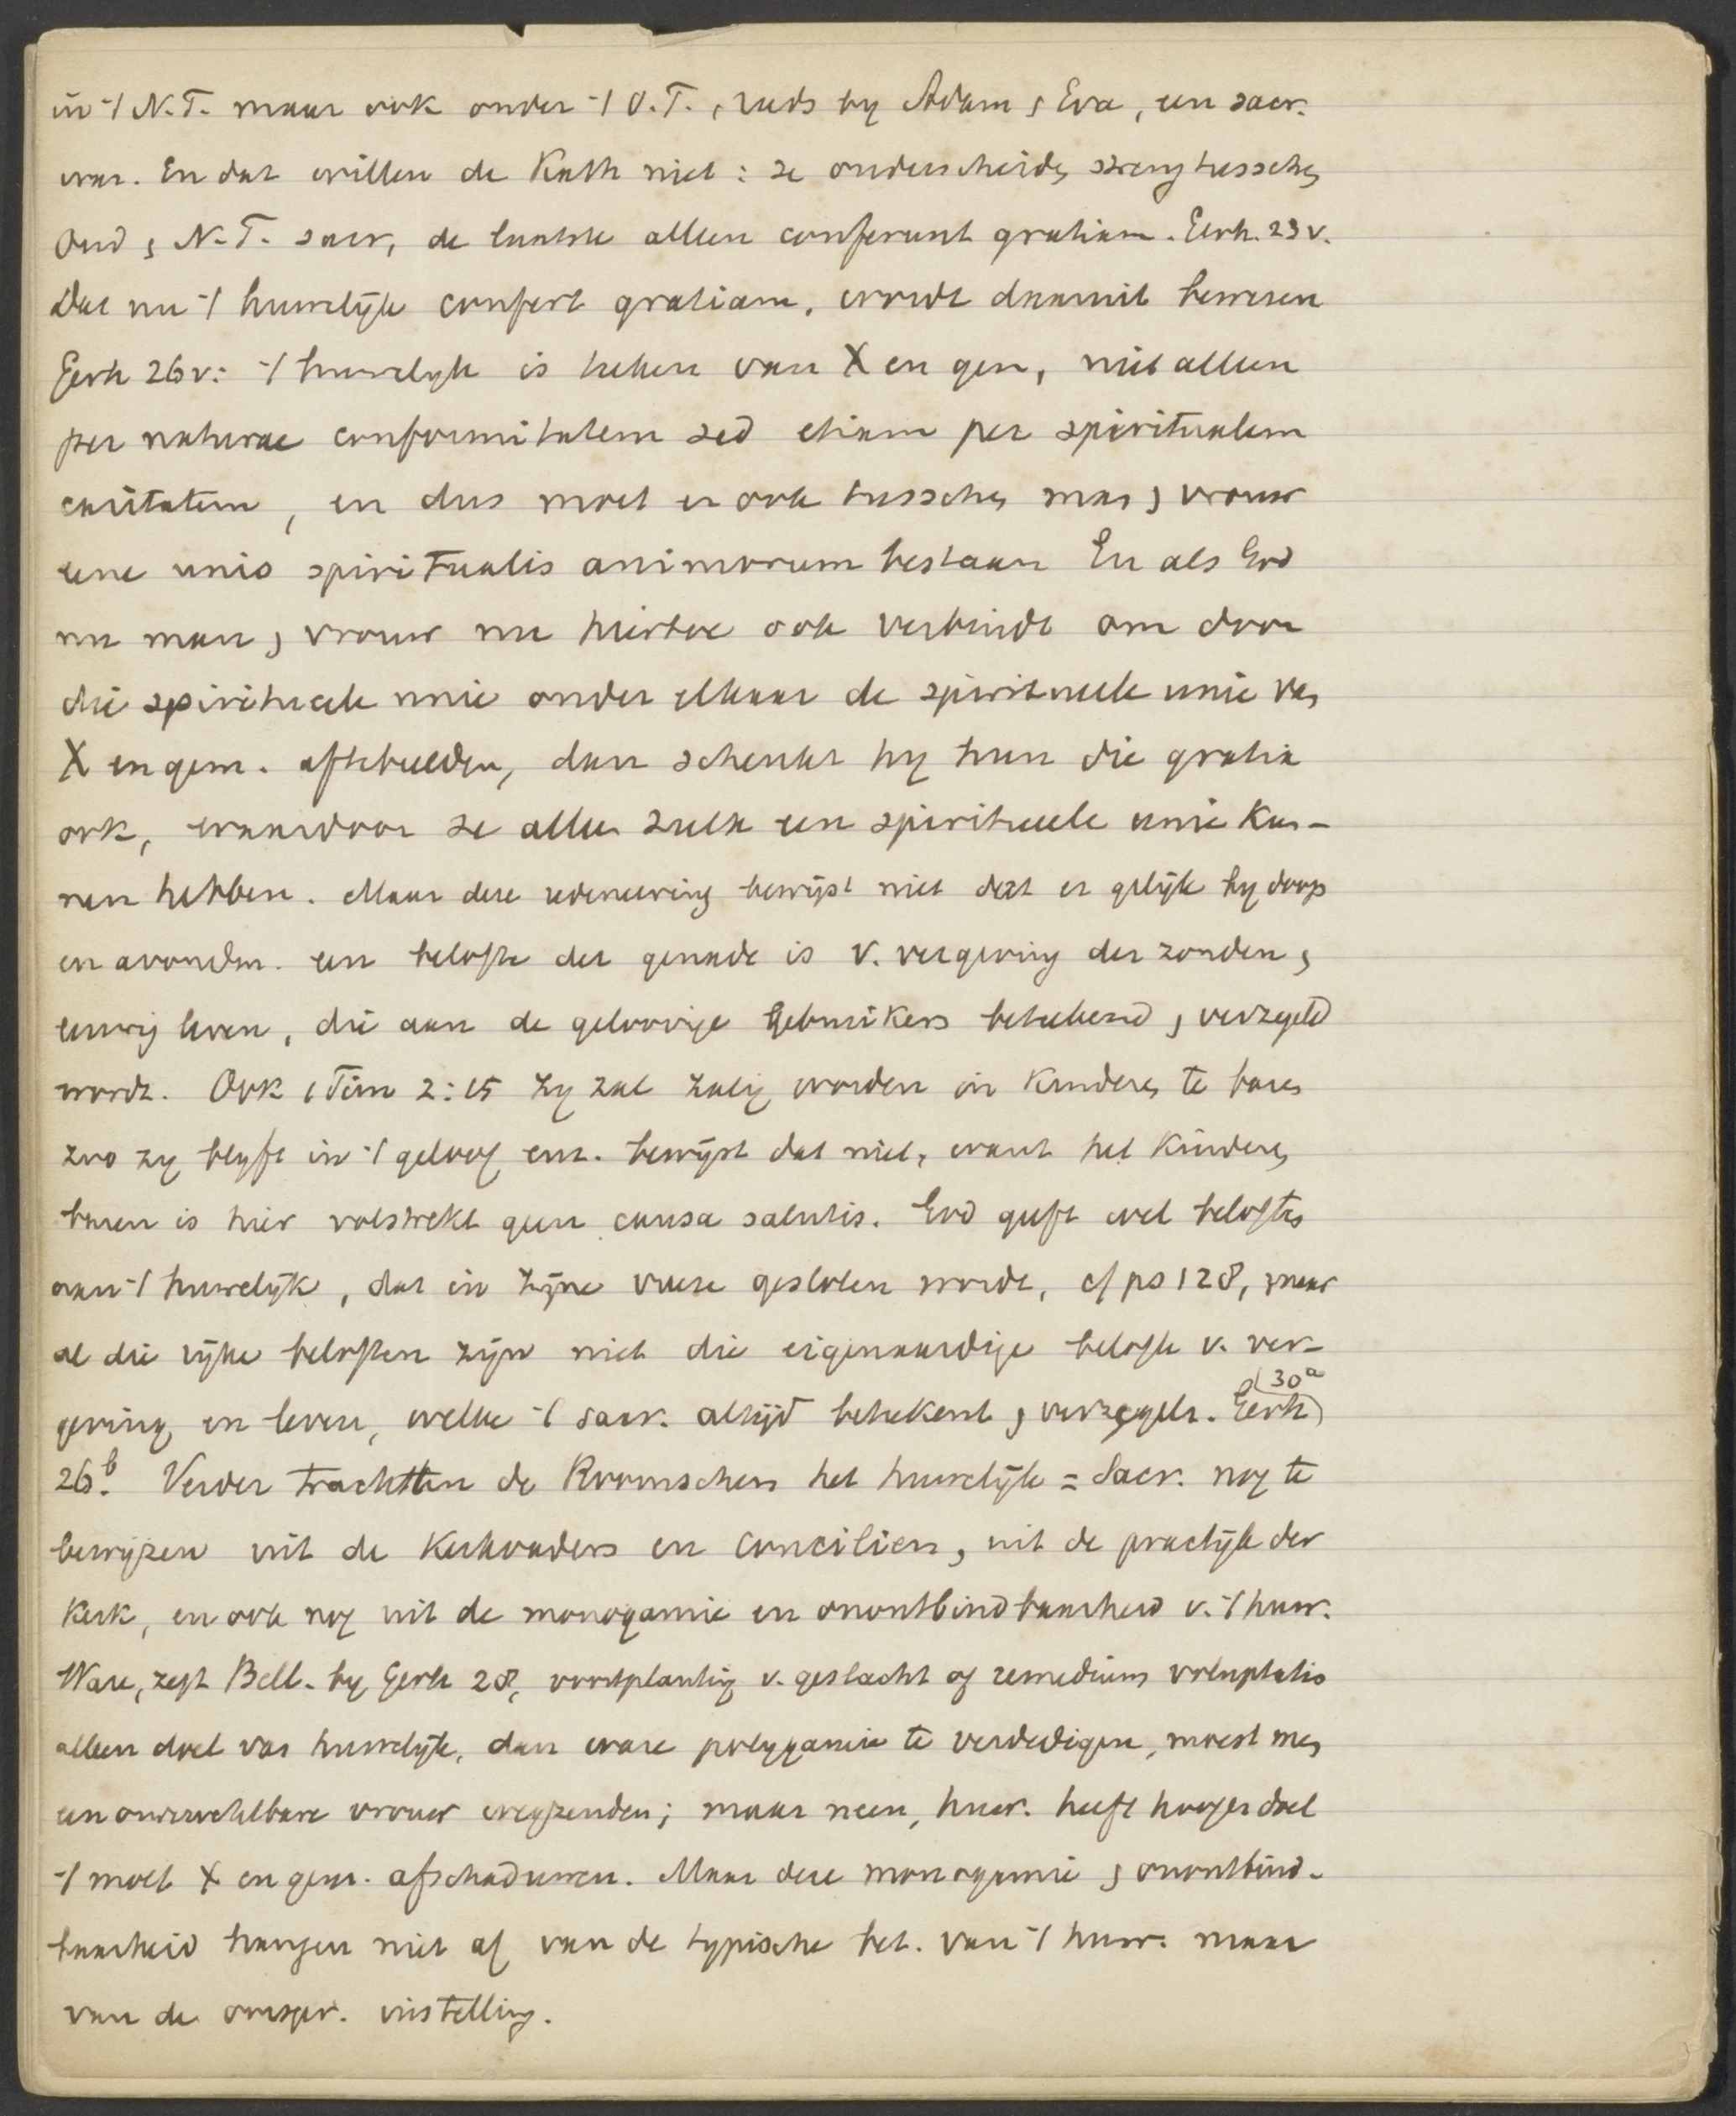 in 't N.T. maar ook onder 't O.T., reeds by Adam & Eva, een sacr.
was. En dat willen de Kath niet: ze onderscheiden streng tusschen
Oud & N.T. sacr, de laatste alleen conferunt gratiam. Gerh. 23 v.
Dat nu 't huwelijk confert gratiam, wordt daarmit bewezen
Gerh 26v: 't huwelyk is teeken van X en gem, niet alleen
per naturae conformitatem sed etiam per spiritualem
caritatem, en dus moet er ook tusschen man & vrouw
eene unio spiritualis animorum bestaan En als God
nu man & vrouw nu hiertoe ook verbindt om door
die spirituele unie onder elkaar de spirituele unie van
X en gem. aftebeelden, dan schenkt hy hun die gratia
ook, waardoor ze alleen zulk een spirituele unie kun-
nen hebben. Maar deze redeneering bewijst niet dat er gelijk by doop
en avondm. een belofte der genade is v. vergeving der zonden &
eeuwig leven, die aan de geloovige gebruikers beteekend & verzegeld
wordt. Ook 1 Tim 2:15 zy zal zalig worden in kinderen te baren
zoo zy blyft in 't geloof enz. bewijst dat niet, want het kinderen
baren is hier volstrekt geen causa salutis. God geeft wel beloften
aan 't huwelijk, dat in zijne vreeze gesloten wordt, cf ps 128, maar
al die rijke beloften zijn niet die eigenaardige belofte v. ver-
geving en leven, welke 't sacr. altijd beteekent & verzegelt. Gerh
cf 30a
26b. Verder trachtten de Roomschen het huwelijk = Sacr. nog te
bewijzen uit de Kerkvaders en Conciliën, uit de practijk der
Kerk, en ook nog uit de monogamie en onontbindbaarheid v. 't huw.
Ware, zegt Bell. by Gerh 28, voortplanting v. geslacht of remedium voluptatis
alleen doel van huwelijk, dan ware polygamie te verdedigen, moest men
een onvruchtbare vrouw wegzenden; maar neen, huw. heeft hooger doel
't moet X en gem. afschaduwen. Maar deze monogamie & onontbind-
baarheid hangen niet af van de typische bet. van 't huw. maar
van de oorspr. instelling.